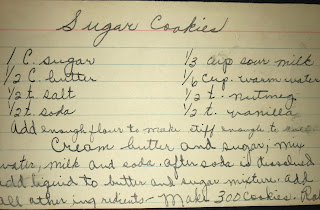 Sugar Cookies
1 C. sugar
1/2 C. butter
1/2 t. salt
1/2 t. soda
1/3 cup sour milk
1/6 cup. warm water
1/2 t. nutmeg
1/2 t. vanilla
Add enough flour to make stiff enough to
Cream butter and sugar, mix
water, milk and soda. after soda is dissolved
add liquid to butter and sugar mixture. add
all other ingredients - Makes 300 cookies.